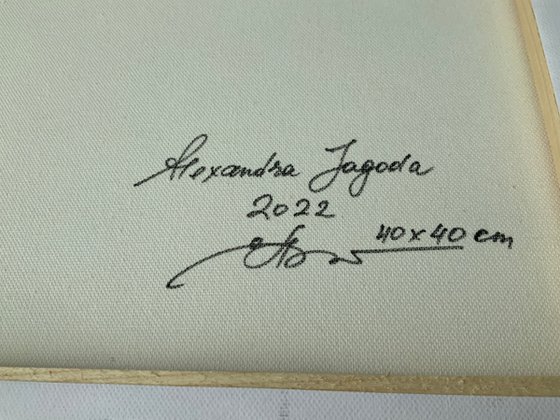 Alexandra Jagoda
2022
40x40 cm